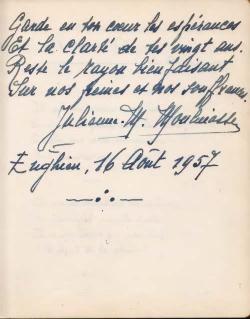 Garde en ton cœur les espérances
Et la clarté de tes vingt ans.
Reste le rayon bienfaisant
Sur nos peines et nos souffrances.
Enghien, 16 Août 1957